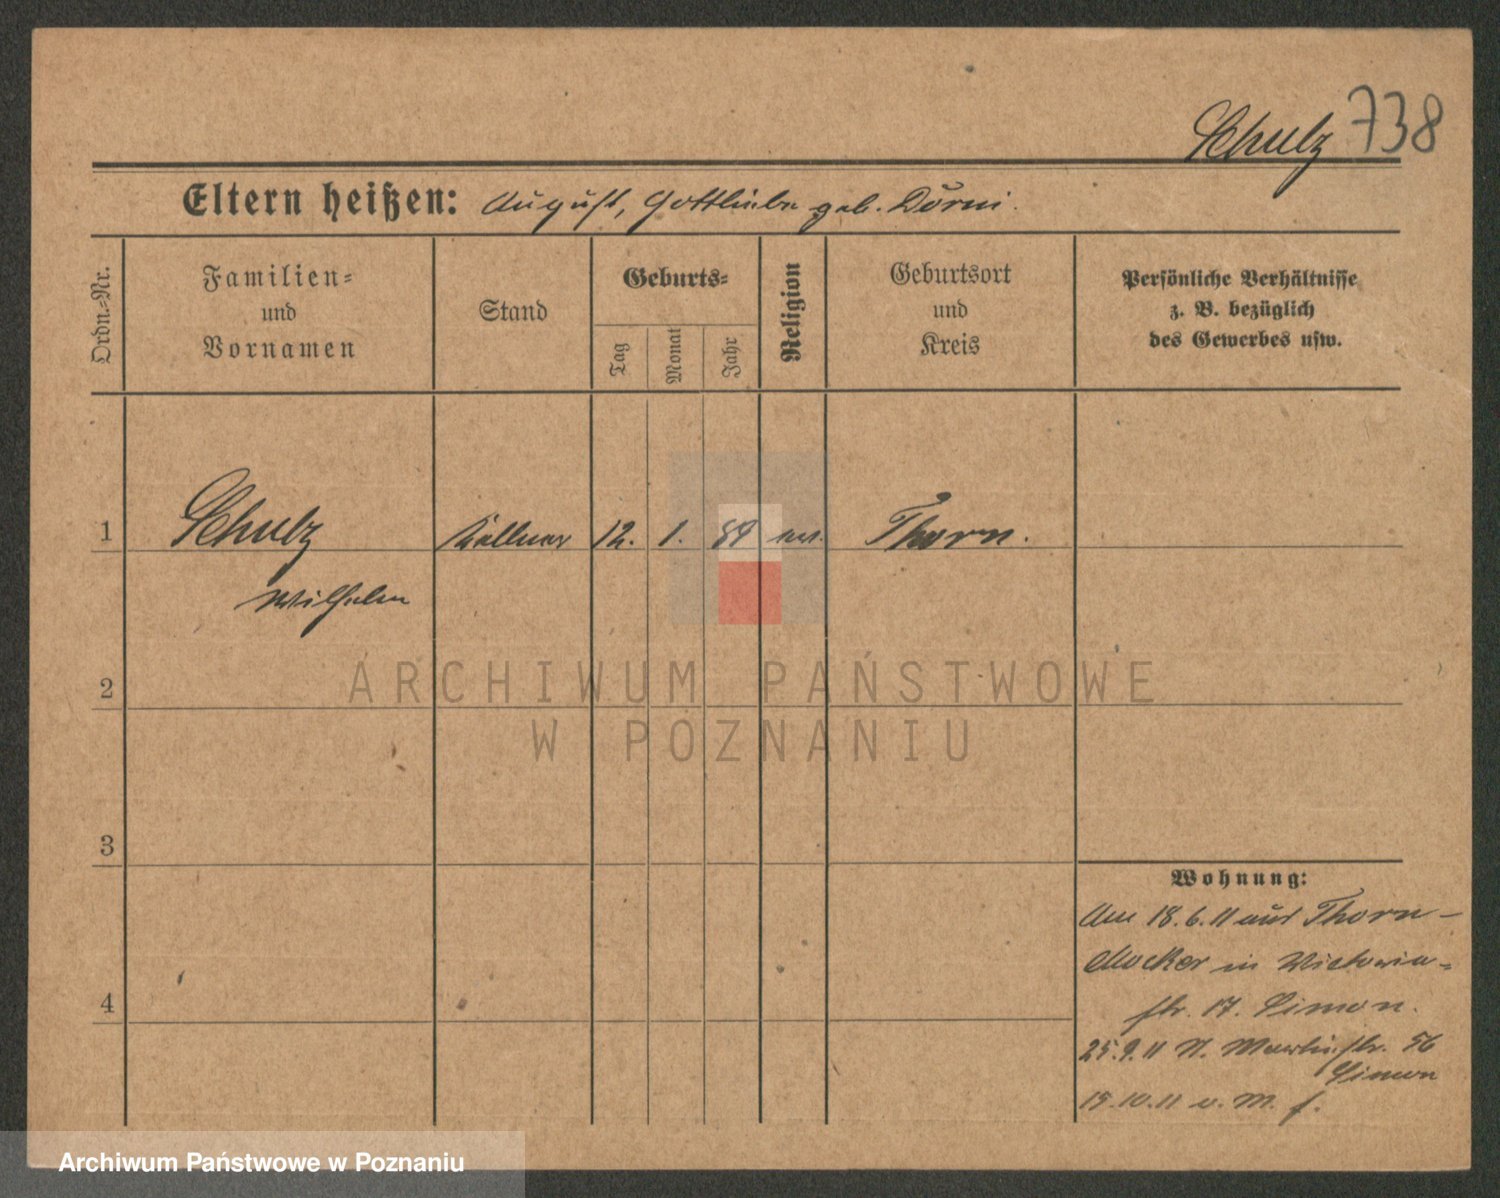 Schulz 738
Eltern heißen: August, Gottliebe geb. Dörni.
Ordn.-Nr.
Familien-
und
Vornamen
Stand
Geburts-
Tag
Monat
Jahr
Religion
Geburtsort
und
Kreis
Persönliche Verhältnisse
z. B. bezüglich
des Gewerbes usw.
1 Schulz Kellner 12. 1. 89 ev. Thorn.
Wilhelm
2
3
4
ARCHIWUM PAŃSTWOWE
W POZNANIU
Wohnung:
Am 18.6.11 aus Thorn-
Mocker in Victoria-
str. 17. Simon.
25.9.11 N. Markt.str. 56
Simon
15.10.11 u. M. f.
Archiwum Państwowe w Poznaniu